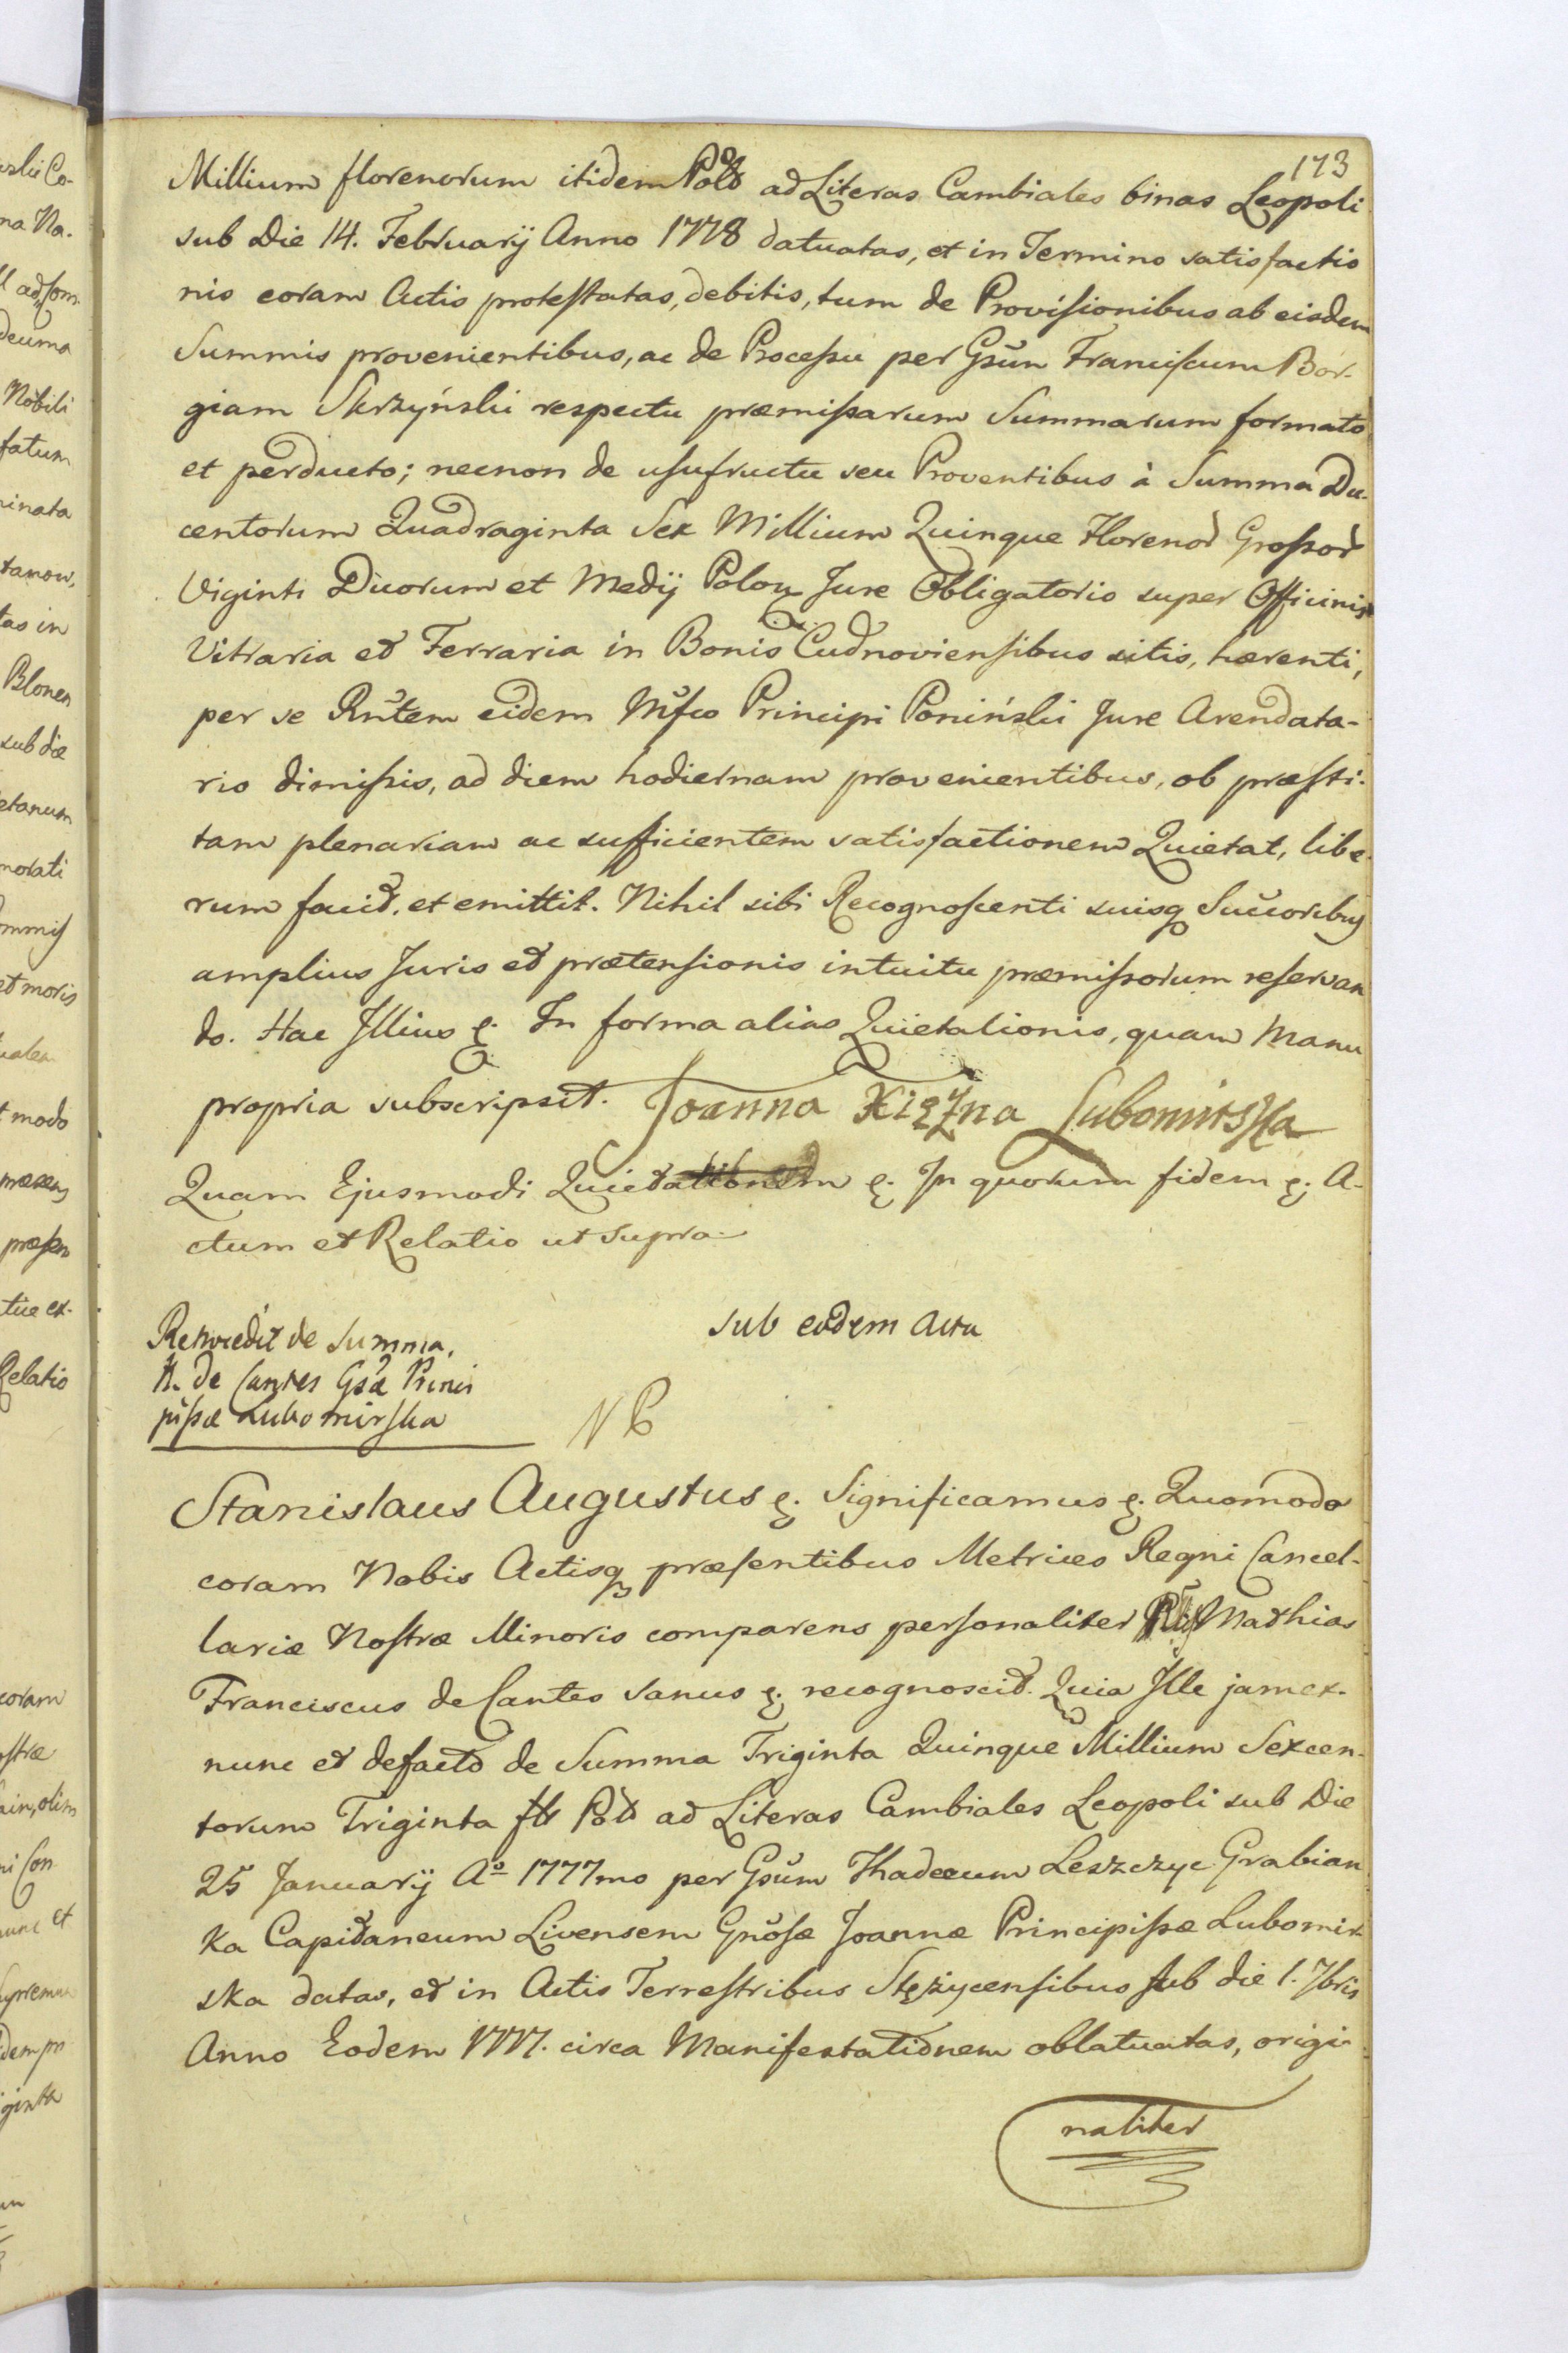 173
Millium florenorum itidem Pold ad Literas Cambiales binas Leopoli
sub Die 14. Februarij Anno 1778 datuatas, et in Termino satisfactio
nis coram Actis protestatas, debitis, tum de Provisionibus ab eisdem
Summis provenientibus, ac de Processu per Gsũn Franciscum Bor-
giam Skrzyński respectu præmissarum Summarum formato
et perducto; necnon de usufructu seu Proventibus à Summa Du-
centorum Quadraginta Sex Millium Quinque Florenor Grossor
Viginti Duorum et Medij Polon Jure Obligatorio super Officinis
Vitraria et Ferraria in Bonis Cudnoviensibus sitis, hærenti,
per se Rñtem eidem Mfco Principi Poniński Jure Arendata-
rio dimissis, ad diem hodiernam provenientibus, ob præsti-
tam plenariam ac sufficientem satisfactionem Quietat, libe-
rum facit, et emittit. Nihil sibi Recognoscenti suisq Succoribus
amplius Juris et prætensionis intuitu præmissorum reservan
do. Hac Illius ę. In forma alias Quietationis, quam Manu
propria subscripsit. Joanna Xiężna Lubomirska
Quam Ejusmodi Quietationem ę. In quorum fidem ę. A-
ctum et Relatio ut supra.
Sub eodem Actu
de Summa,
N. de Cantes Gsæ Princi
pissæ Lubomirska
NP
Stanislaus Augustus ę. Significamus ę. Quomodo
coram Nobis Actisq præsentibus Metrices Regni Cancel-
lariæ Nostræ Minoris comparens personaliter Mathias
Franciscus de Cantes sanus ę. recognoscit. Quia Ille jam ex-
nunc et defacto de Summa Triginta Quinque Millium Sexcen-
torum Triginta fls Pold ad Literas Cambiales Leopoli sub Die
25 Januarij Aº 1777mo per Gsũm Thadeum Leszczyc Grabian
ka Capitaneum Livensem Gnõsæ Joannæ Principissæ Lubomir
ska datas, et in Actis Terrestribus Stężycensibus sub die 1. 7bris
Anno Eodem 1777. circa Manifestationem oblatuatas, origi-
naliter